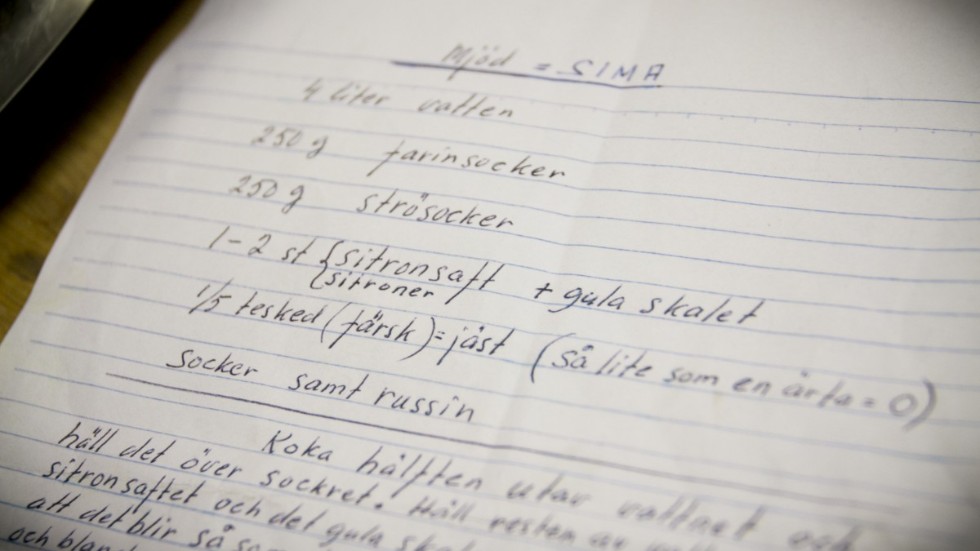 Mjöd = SIMA
4 liter vatten
250 g farinsocker
250 g strösocker
1-2 st { sitronsaft + gula skalet
{ sitroner
1/5 tesked (färsk) = jäst (så lite som en ärta = 0)
Socker samt russin
Koka hälften utav vattnet och
häll det över sockret. Häll resten av
sitronsaftet och det gula
att det blir så
och